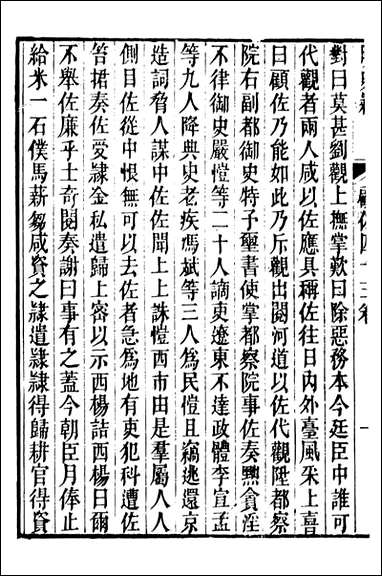 對曰莫甚劉觀上撫掌歎曰除惡務本今廷臣中誰可
代觀者兩人咸以佐應具稱佐往日內外臺風采上喜
曰顧佐乃能如此乃斥觀出閱河道以佐代觀陞都察
院右副都御史特予璽書使掌都察院事佐奏黜貪淫
不律御史嚴愷等二十人謫吏遼東不達政體李宜孟
等九人降典史老疾馮斌等三人為民愷且竊逃還京
造詞脅人謀中佐佐聞上上誅愷西市由是羣屬人人
側目佐從中恨無可以去佐者急為地有吏犯科遭佐
笞捃奏佐受隸金私遣歸上密以示西楊詰西楊曰爾
不舉佐廉乎士奇閱奏謝曰事有之蓋今朝臣月俸止
給米一石僕馬薪芻咸資之隸遣隸隸得歸耕官得資